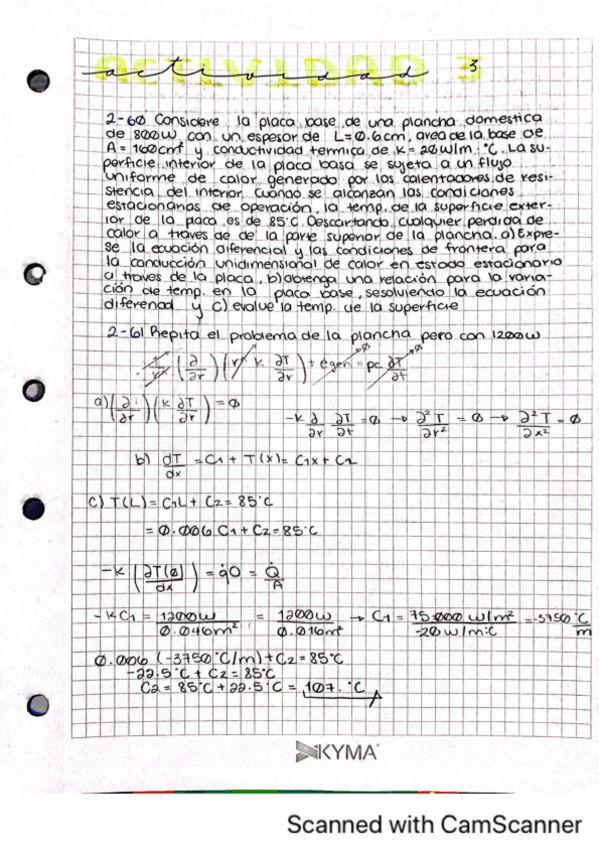 actividad 3
2-60 Considere la placa base de una plancha domestica
de 800w con un espesor de L=0.6cm, area de la base de
A = 160cm² y conductividad termica de K=20w/m·°C. La su-
perficie interior de la placa basa se sujeta a un flujo
uniforme de calor generado por los calentadores de resi-
stencia del interior. Cuando se alcanzan las condiciones
estacionarias de operación, la temp. de la superficie exter-
ior de la placa es de 85°C Descartando cualquier perdida de
calor a traves de de la parte superior de la plancha. a) Expre-
se la ecuación diferencial y las condiciones de frontera para
la conducción unidimensional de calor en estado estacionario
a traves de la placa, b) obtenga una relación para la varia-
ción de temp. en la placa base, sesolviendo la ecuación
diferencial y c) evalue la temp. de la superficie
2-61 Repita el problema de la plancha pero con 1200w
(∂/∂r)(r k ∂T/∂r) + égen = pc ∂T/∂t
a) (∂/∂r)(k ∂T/∂r) = 0 -k ∂/∂r ∂T/∂t = 0 → ∂²T/∂r² = 0 → ∂²T/∂x² = 0
b) dT/dx = C1 + T(x) = C1x + C2
c) T(L) = C1L + C2 = 85°C
= 0.006 C1 + C2 = 85°C
-k (∂T(0)/dx) = q̇0 = Q̇/A
-KC1 = 1200w/0.046m² = 1200w/0.016m² → C1 = 75.000 w/m²/-20w/m·C = -3750 °C/m
0.006 (-3750 °C/m) + C2 = 85°C
-22.5°C + C2 = 85°C
C2 = 85°C + 22.5°C = 107. °C
KYMA
Scanned with CamScanner